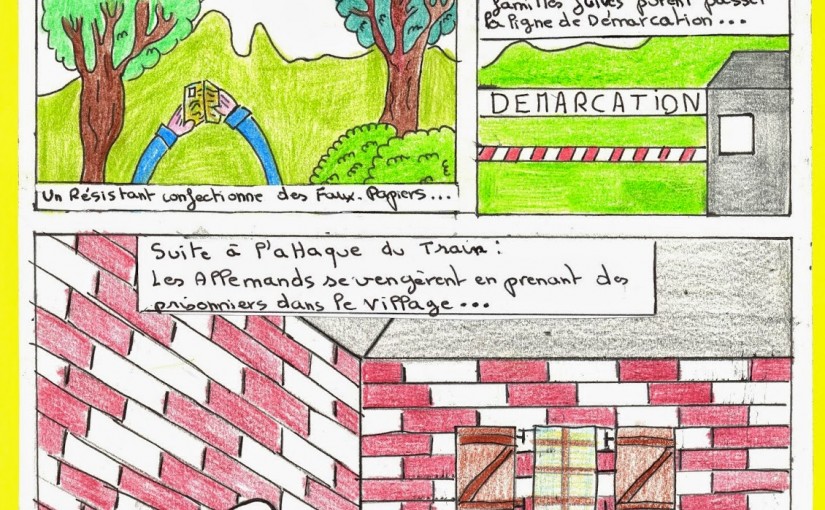 Un Résistant confectionne des Faux-Papiers...
familles juives purent passer
la ligne de Démarcation...
DEMARCATION
Suite à l'attaque du Train:
Les Allemands se vengèrent en prenant des
prisonniers dans le village...